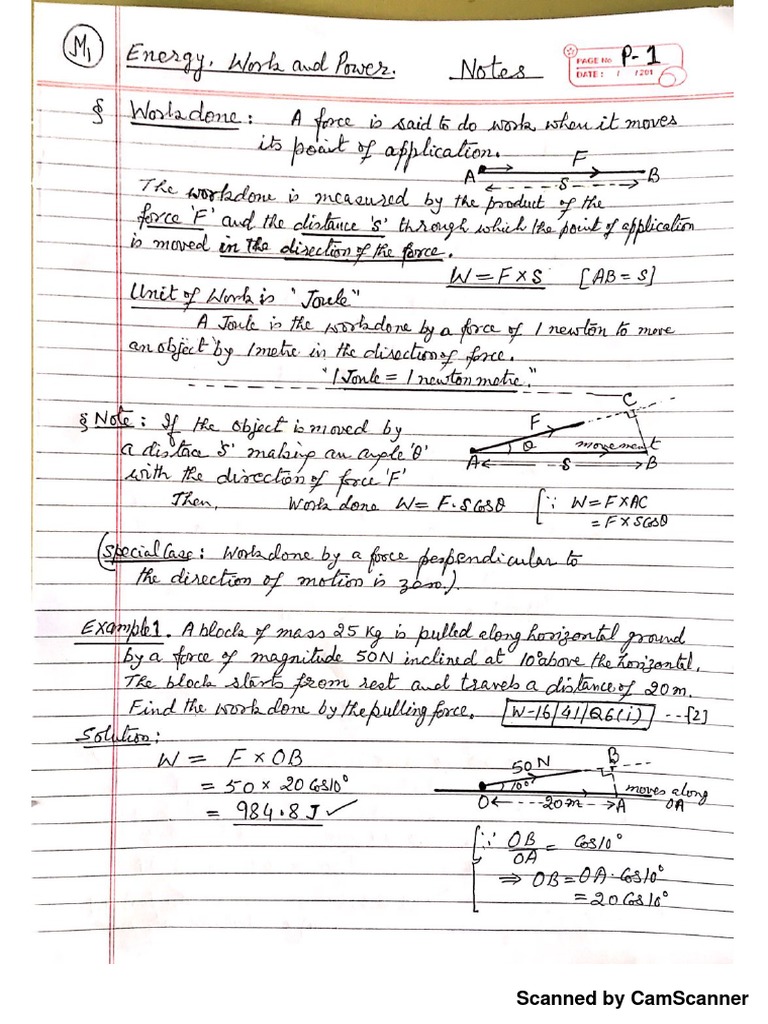 M1 Energy, Work and Power. Notes PAGE No P-1
DATE: / /201
§ Workdone: A force is said to do work when it moves
its point of application.
A F B
S
The workdone is measured by the product of the
force 'F' and the distance 'S' through which the point of application
is moved in the direction of the force.
W = F × S [AB = S]
Unit of Work is "Joule"
A Joule is the workdone by a force of 1 newton to move
an object by 1 metre in the direction of force.
"1 Joule = 1 newton metre."
§ Note: If the object is moved by
a distace 'S' making an angle 'θ'
with the direction of force 'F'
F C
θ movement
A S B
Then, Work done W = F·S Cosθ [∵ W = F × AC
= F × S Cosθ
(Special Case: Workdone by a force perpendicular to
the direction of motion is zero.)
Example 1. A block of mass 25 Kg is pulled along horizontal ground
by a force of magnitude 50N inclined at 10° above the horizontal.
The block starts from rest and travels a distance of 20 m.
Find the work done by the pulling force. W-16/41/Q6(i) --[2]
Solution:
W = F × OB
= 50 × 20 Cos10°
= 984.8 J ✓
50 N B
10° moves along
O 20 m A OA
∵ OB/OA = Cos10°
⇒ OB = OA · Cos10°
= 20 Cos10°
Scanned by CamScanner